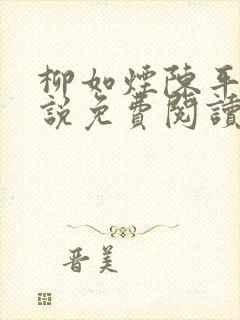 柳如煙陳平
說免費閱讀
晋美